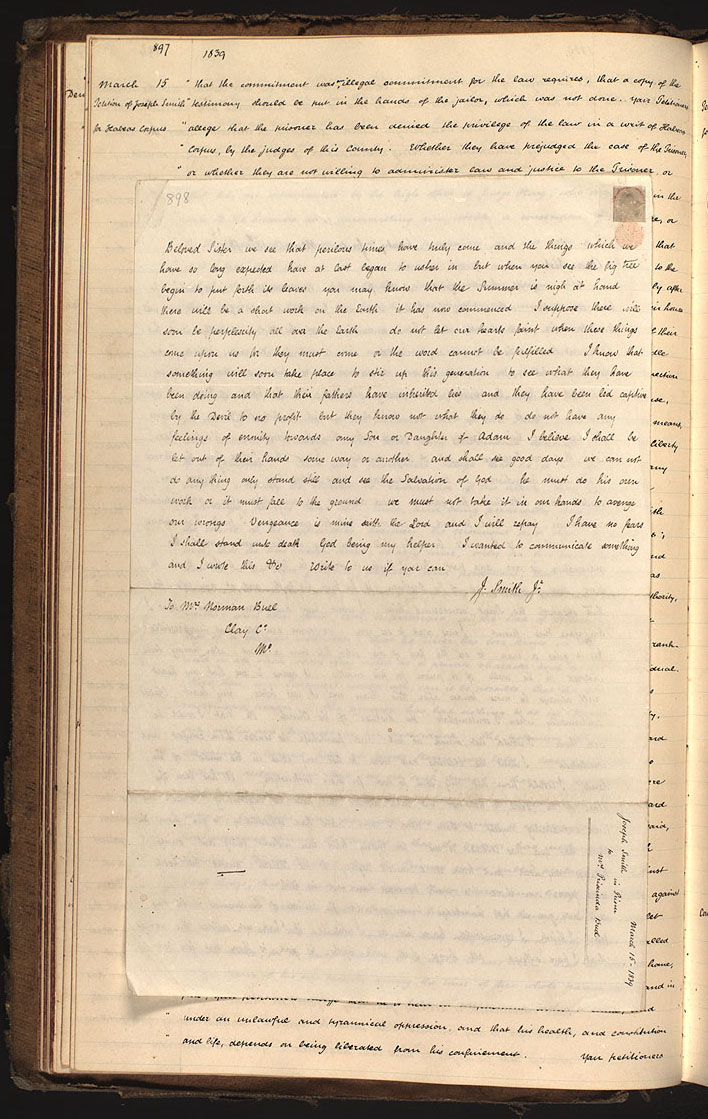 897 1839
March 15 " that the commitment was illegal commitment for the law requires, that a copy of the
Petition of Joseph Smith " testimony should be put in the hands of the jailor, which was not done. Your Petitioners
for Habeas Corpus " allege that the prisoner has been denied the privilege of the law in a writ of Habeas
" Corpus, by the judges of this County. Whether they have prejudged the case of the Prisoner
" or whether they are not willing to administer law and justice to the Prisoner or
898
Beloved Sister we see that perilous times have truly come and the things which we
have so long expected have at last began to usher in but when you see the fig tree
begin to put forth its leaves you may know that the Summer is nigh at hand
there will be a short work on the Earth it has now commenced I suppose there will
soon be perplexity all over the Earth do not let our hearts faint when these things
come upon us for they must come or the word cannot be fulfilled I know that
something will soon take place to stir up this generation to see what they have
been doing and that their fathers have inherited lies and they have been led captive
by the Devil to no profit but they know not what they do do not have any
feelings of enmity towards any Son or Daughter of Adam I believe I shall be
let out of their hands some way or another and shall see good days we can not
do any thing only stand still and see the Salvation of God he must do his own
work or it must fall to the ground we must not take it in our hands to avenge
our wrongs Vengeance is mine saith the Lord and I will repay I have no fears
I shall stand unto death God being my helper I wanted to communicate something
and I wrote this &c Write to us if you can
J. Smith Jr.
To Mrs Norman Buel
Clay Co.
Mo.
Joseph Smith in Prison March 15th 1839
to
Mrs Presinda Buel
in the
or
that
to the
by after
their
means,
liberty
any
thority,
against
alled
home,
and in
" under an unlawful and tyrannical oppression, and that his health, and constitution
and life, depends on being liberated from his confinement. Your petitioners